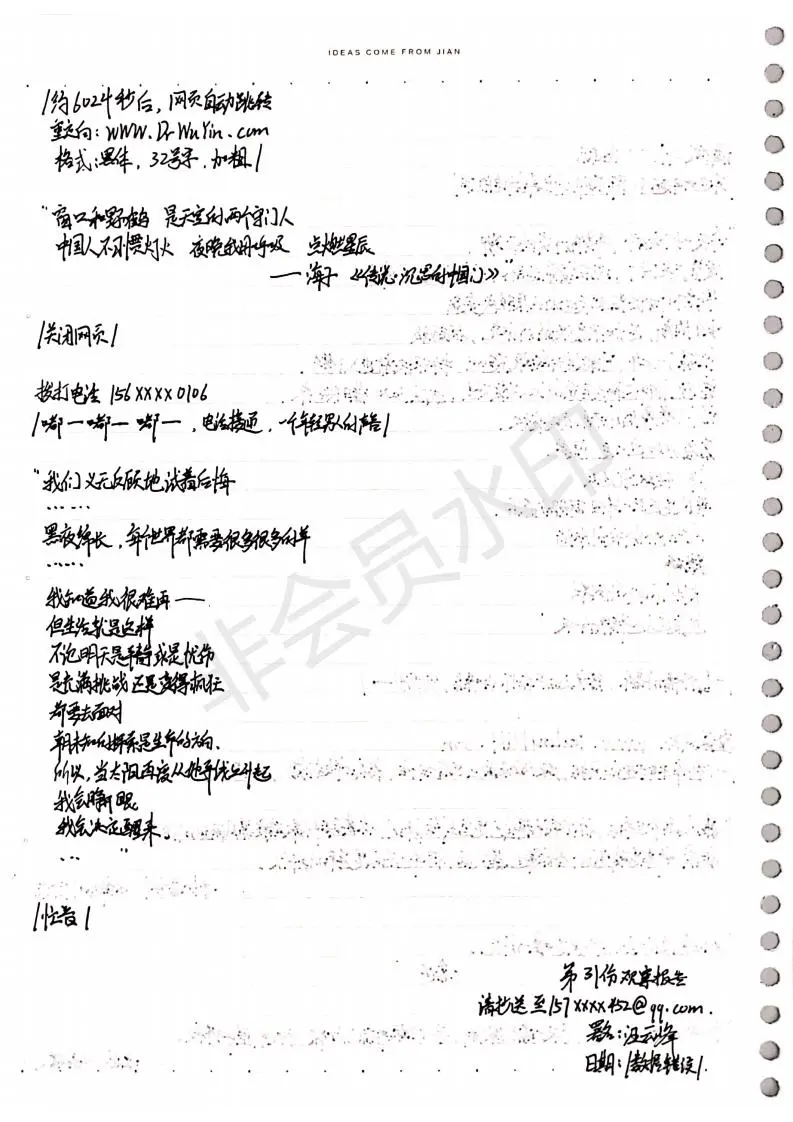 IDEAS COME FROM JIAN
/约6024秒后，网页自动跳转
重定向：WWW.DrWuYin.com
格式：黑体，32号字，加粗/
"窗口和野鸽 是天空的两个守门人
中国人不习惯灯火 夜晚我用呼吸 点燃星辰
——海子《传说·沉思的中国门》"
/关闭网页/
拨打电话 156XXXX0106
/嘟一嘟一 嘟一，电话接通，一个年轻男人的声音/
"我们义无反顾地试着后悔
······
黑夜绵长，每个世界都需要很多很多的羊
······
我知道我很难再——
但生活就是这样
不论明天是平静或是忧伤
是充满挑战还是变得疯狂
都要去面对
朝未知的探索是生命的方向.
所以，当太阳再度从地平线上升起
我会睁开眼
我会决定醒来。
··· "
/忙音/
第31份观察报告
请抄送至157XXXX452@qq.com.
署名：汪云峰
日期：/数据错误/.
非会员水印